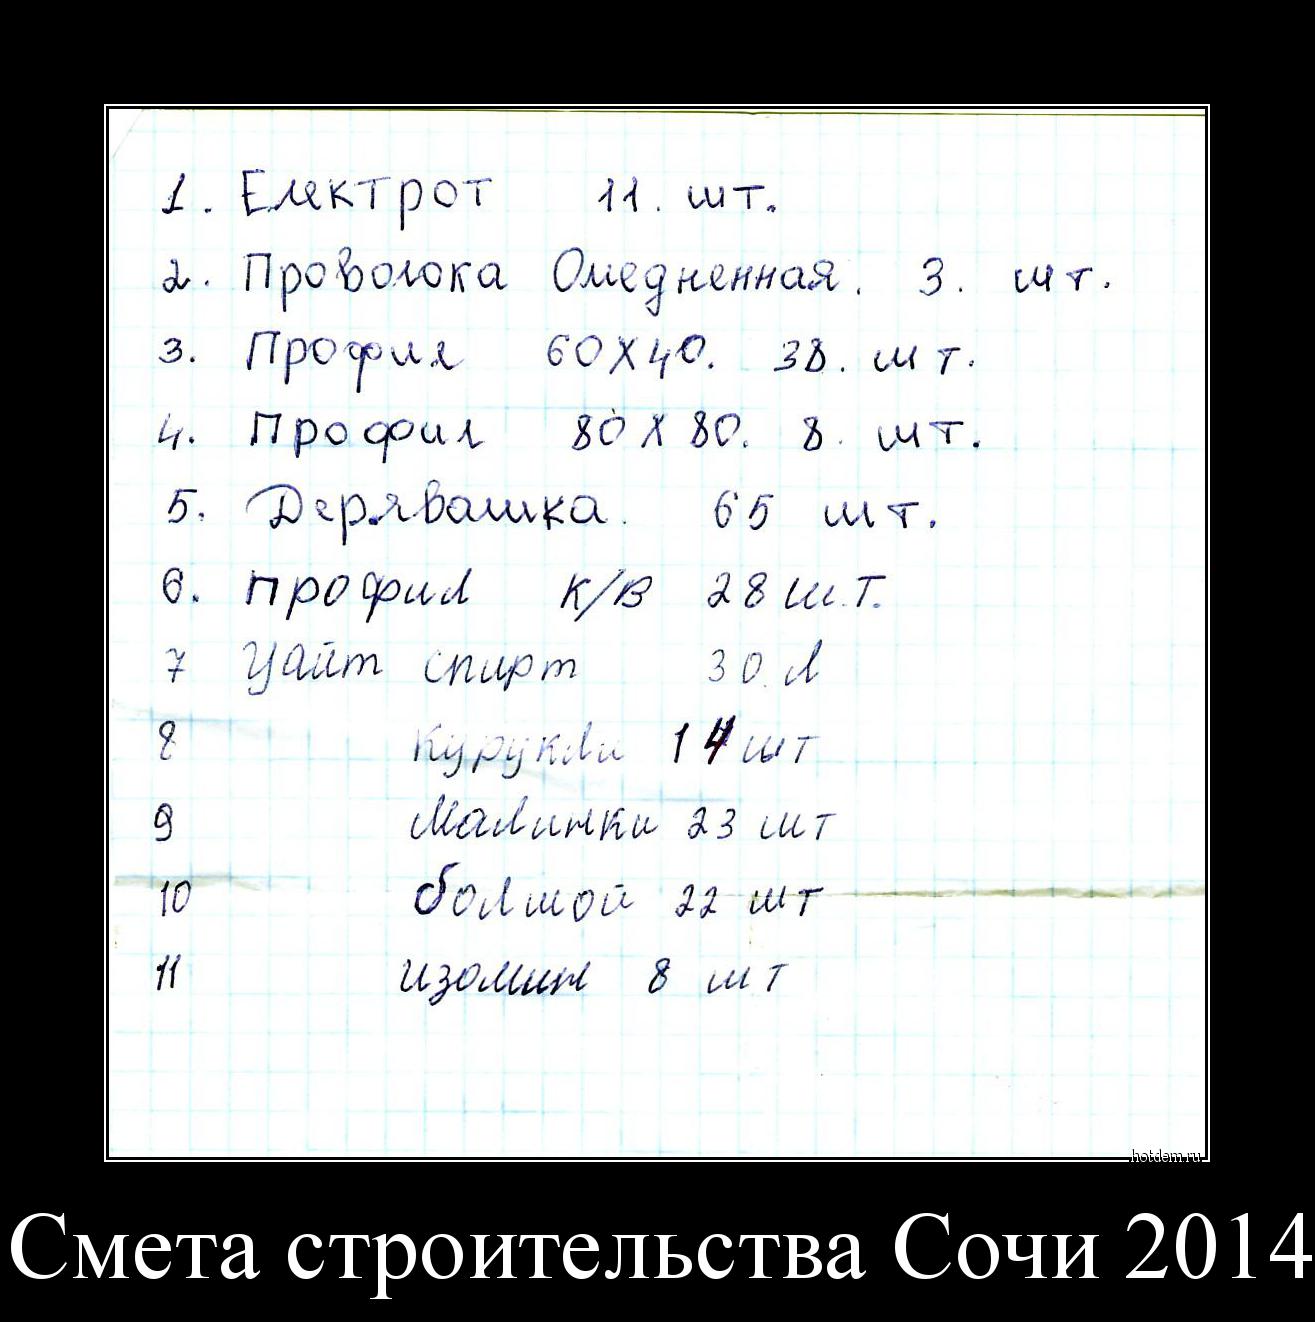 1. Електрот 11. шт.
2. Проволока Омедненная. 3. шт.
3. Профил 60X40. 38. шт.
4. Профил 80X80. 8. шт.
5. Дерявашка. 65 шт.
6. профил к/в 28 шт.
7 Уайт спирт 30. л
8 Курукли 14 шт
9 Малинки 23 шт
10 болшой 22 шт
11 изолин 8 шт
hotdem.ru
Смета строительства Сочи 2014